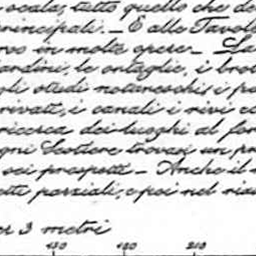 scala, tutto quello che de
principali. _ E alle Tavole
in molte opere _ La
le ortaglie, i bro
gli studi notareschi i p
rivati, i canali i rivi e
ricerca dei luoghi al for
ogni Lettore trovasi un pr
sei prospetti _ Anche il
parziali, e poi nel ria
3 metri
150 180 210